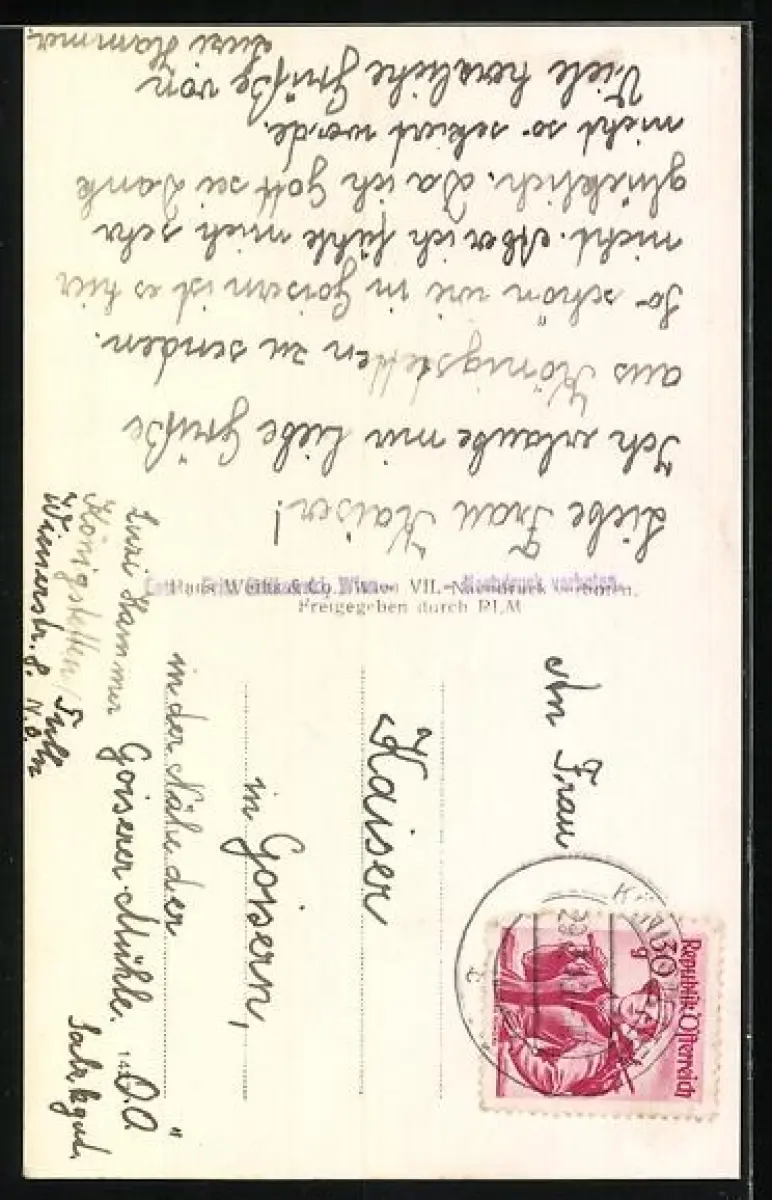 Liebe Frau Kaiser!
Ich erlaube mir liebe Grüße
aus Königstetten zu senden.
So schön wie in Goisern ist es hier
nicht. Aber ich fühle mich sehr
glücklich. Da ich Gott sei Dank
nicht so sekiert werde.
Viele herzliche Grüße von
Luzi Hammer
VII. Nachdruck verboten.
Freigegeben durch RLM
An Frau
Kaiser
in Goisern,
in der Nähe der
Goiserer Mühle. O.Ö
Salzkgut.
Luzi Hammer
Königstetten/Tulln
Wienerstr. 8. N.Ö.
Republik Österreich